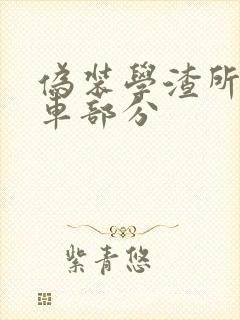 偽裝學渣所
車部分
紫青悠